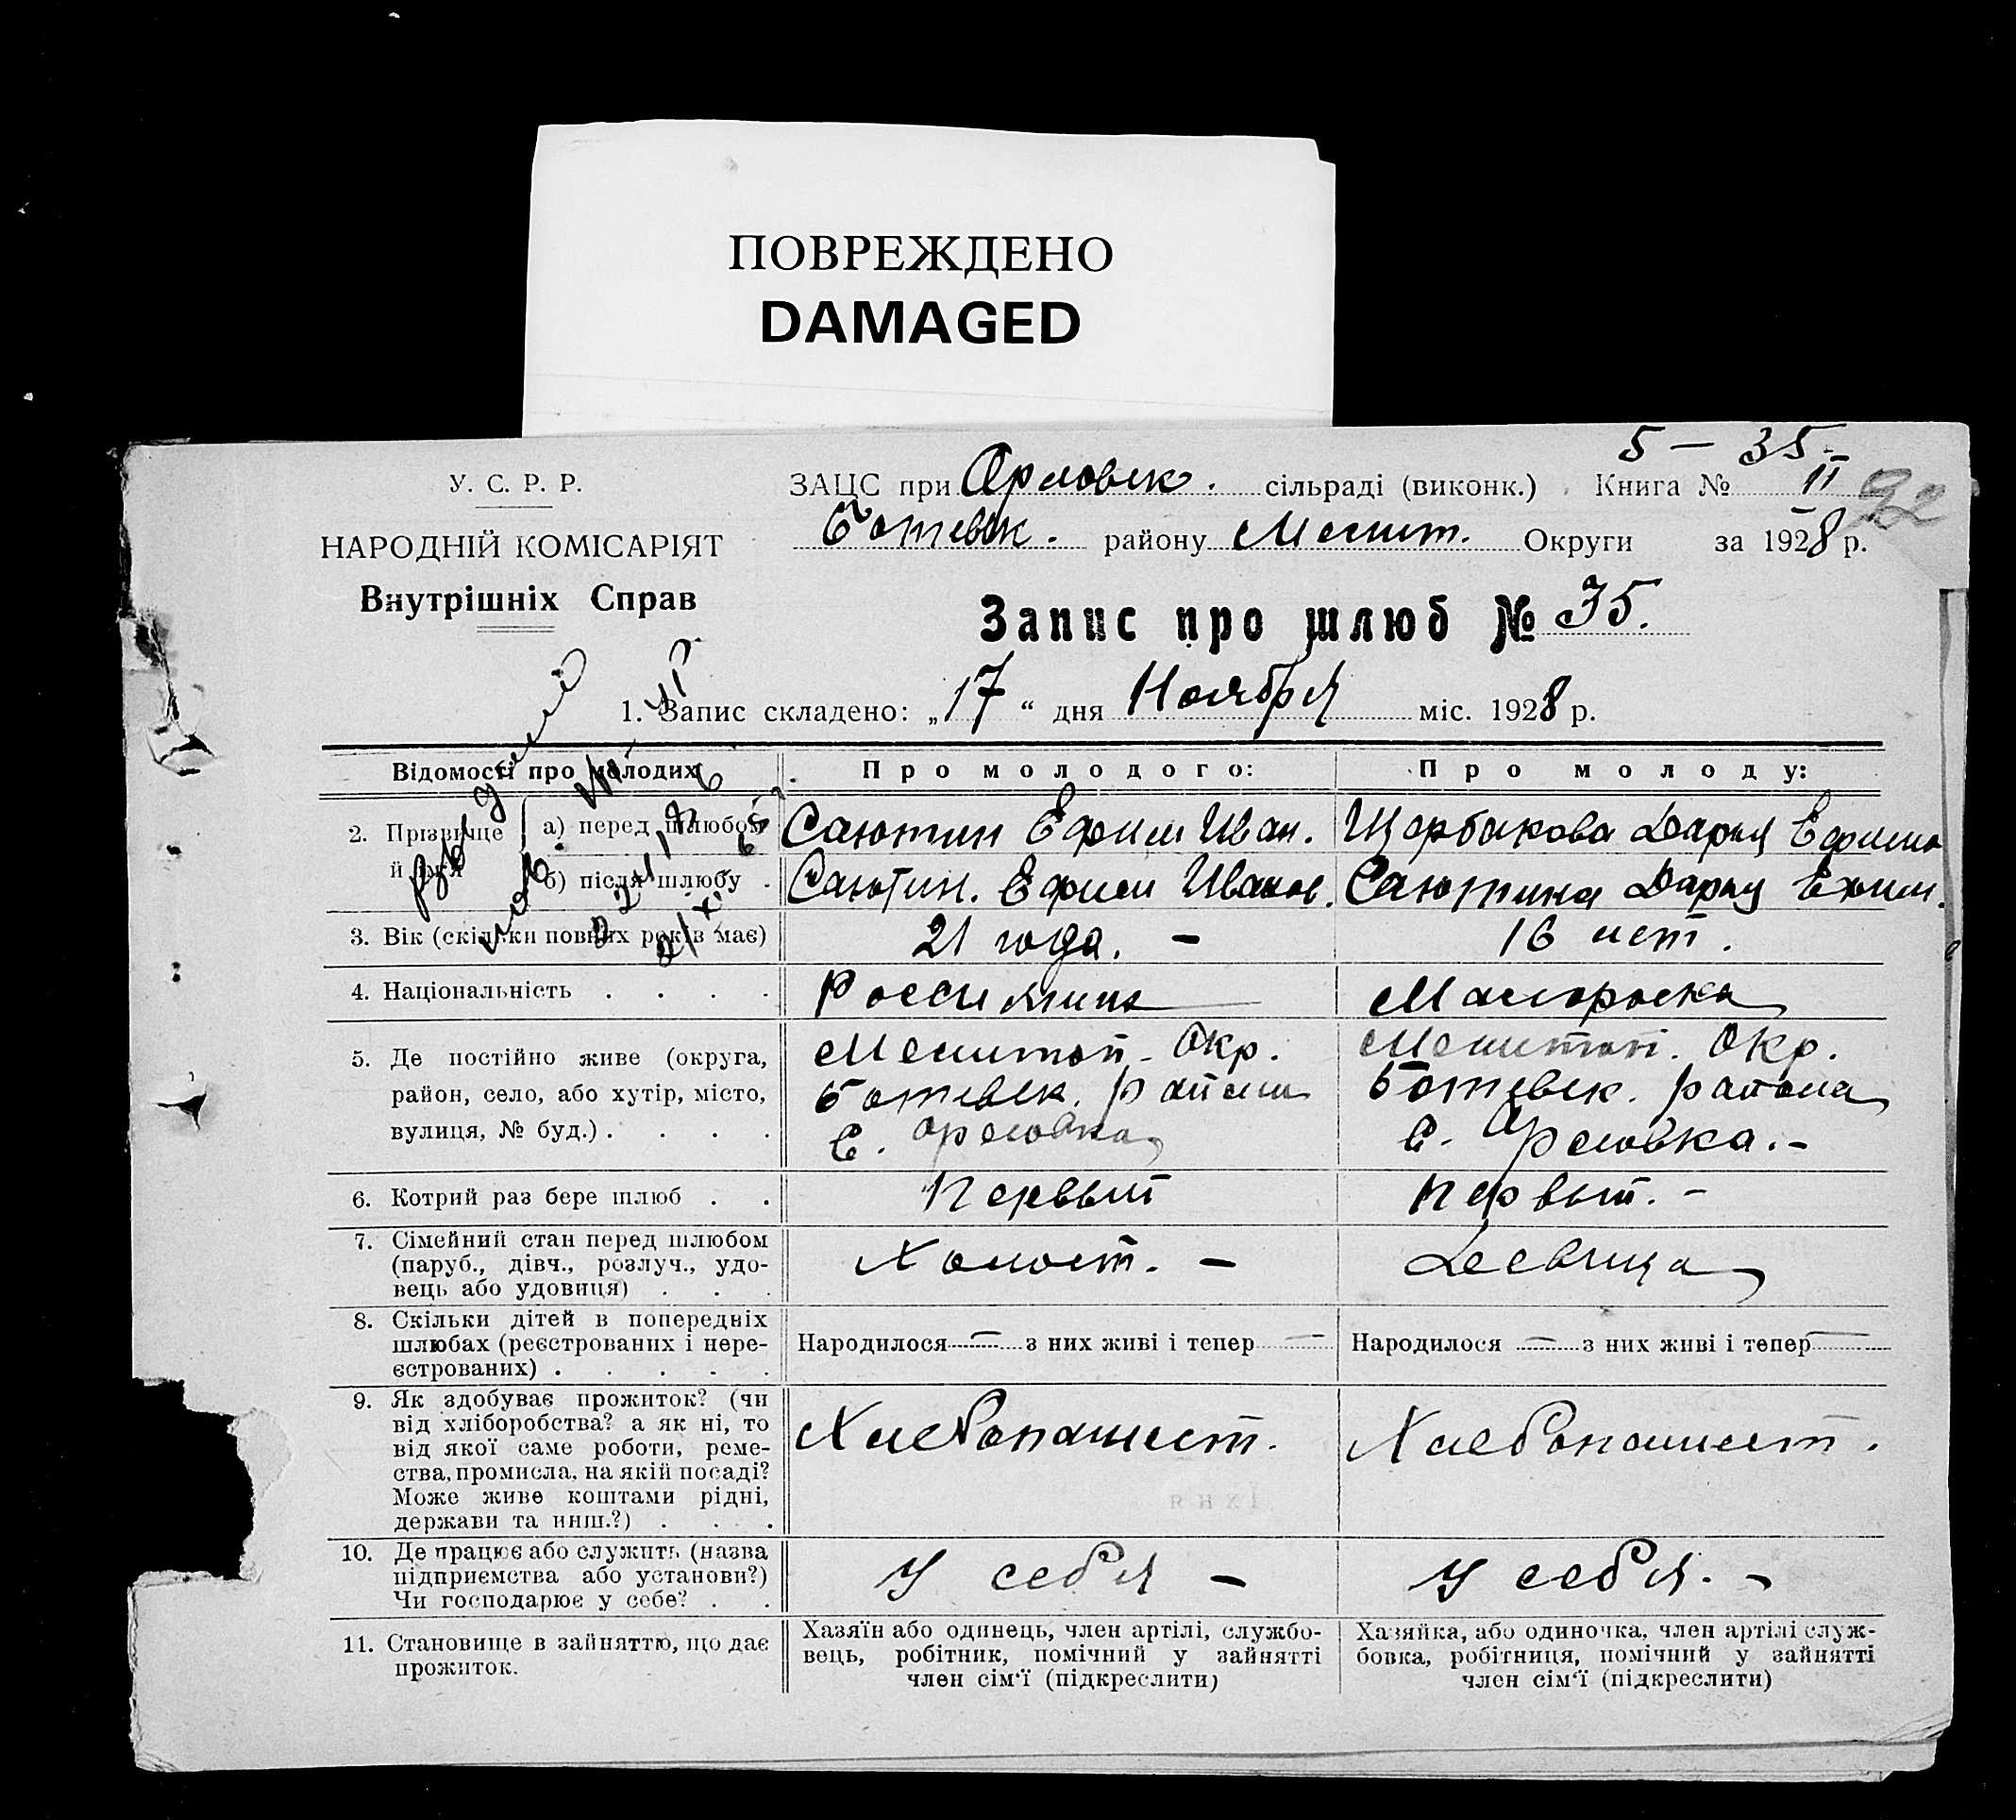 ПОВРЕЖДЕНО
DAMAGED
5 – 35.
У. С. Р. Р.
НАРОДНІЙ КОМІСАРІЯТ
Внутрішніх Справ
ЗАЦС при Орловск. сільраді (виконк.) Книга № II 92
Ботевск. району Мелит. Округи за 1928 р.
Запис про шлюб № 35.
1. Запис складено: „17“ дня Ноября міс. 1928 р.
Відомості про молодих
Про молодого:
Про молоду:
2. Прізвище й ім'я
а) перед шлюбом
Саютин Ефим Иван.
Щербакова Дарья Ефимо
б) після шлюбу
Саютин. Ефим Иванов.
Саютина Дарья Ефим.
3. Вік (скільки повних років має)
21 года. –
16 лет.
4. Національність . . . .
Россиянин
Малороска
5. Де постійно живе (округа,
район, село, або хутір, місто,
вулиця, № буд.) . . . .
Мелитоп. Окр.
Ботевск. района
С. Орловка
Мелитоп. Окр.
Ботевск. района
С. Орловка. –
6. Котрий раз бере шлюб . .
Первый
Первый. –
7. Сімейний стан перед шлюбом
(паруб., дівч., розлуч., удо-
вець або удовиця) . . .
Холост. –
Девица
8. Скільки дітей в попередніх
шлюбах (реєстрованих і нере-
єстрованих) . . . . .
Народилося — з них живі і тепер —
Народилося — з них живі і тепер —
9. Як здобуває прожиток? (чи
від хліборобства? а як ні, то
від якої саме роботи, реме-
ства, промисла, на якій посаді?
Може живе коштами рідні,
держави та инш.?) . . .
Хлебопашест.
Хлебопашест.
10. Де працює або служить (назва
підприємства або установи?)
Чи господарює у себе? . .
У себя –
У себя. –
11. Становище в зайняттю, що дає
прожиток.
Хазяїн або одинець, член артілі, службо-
вець, робітник, помічний у зайнятті
член сім'ї (підкреслити)
Хазяйка, або одиночка, член артілі служ-
бовка, робітниця, помічний у зайнятті
член сім'ї (підкреслити)